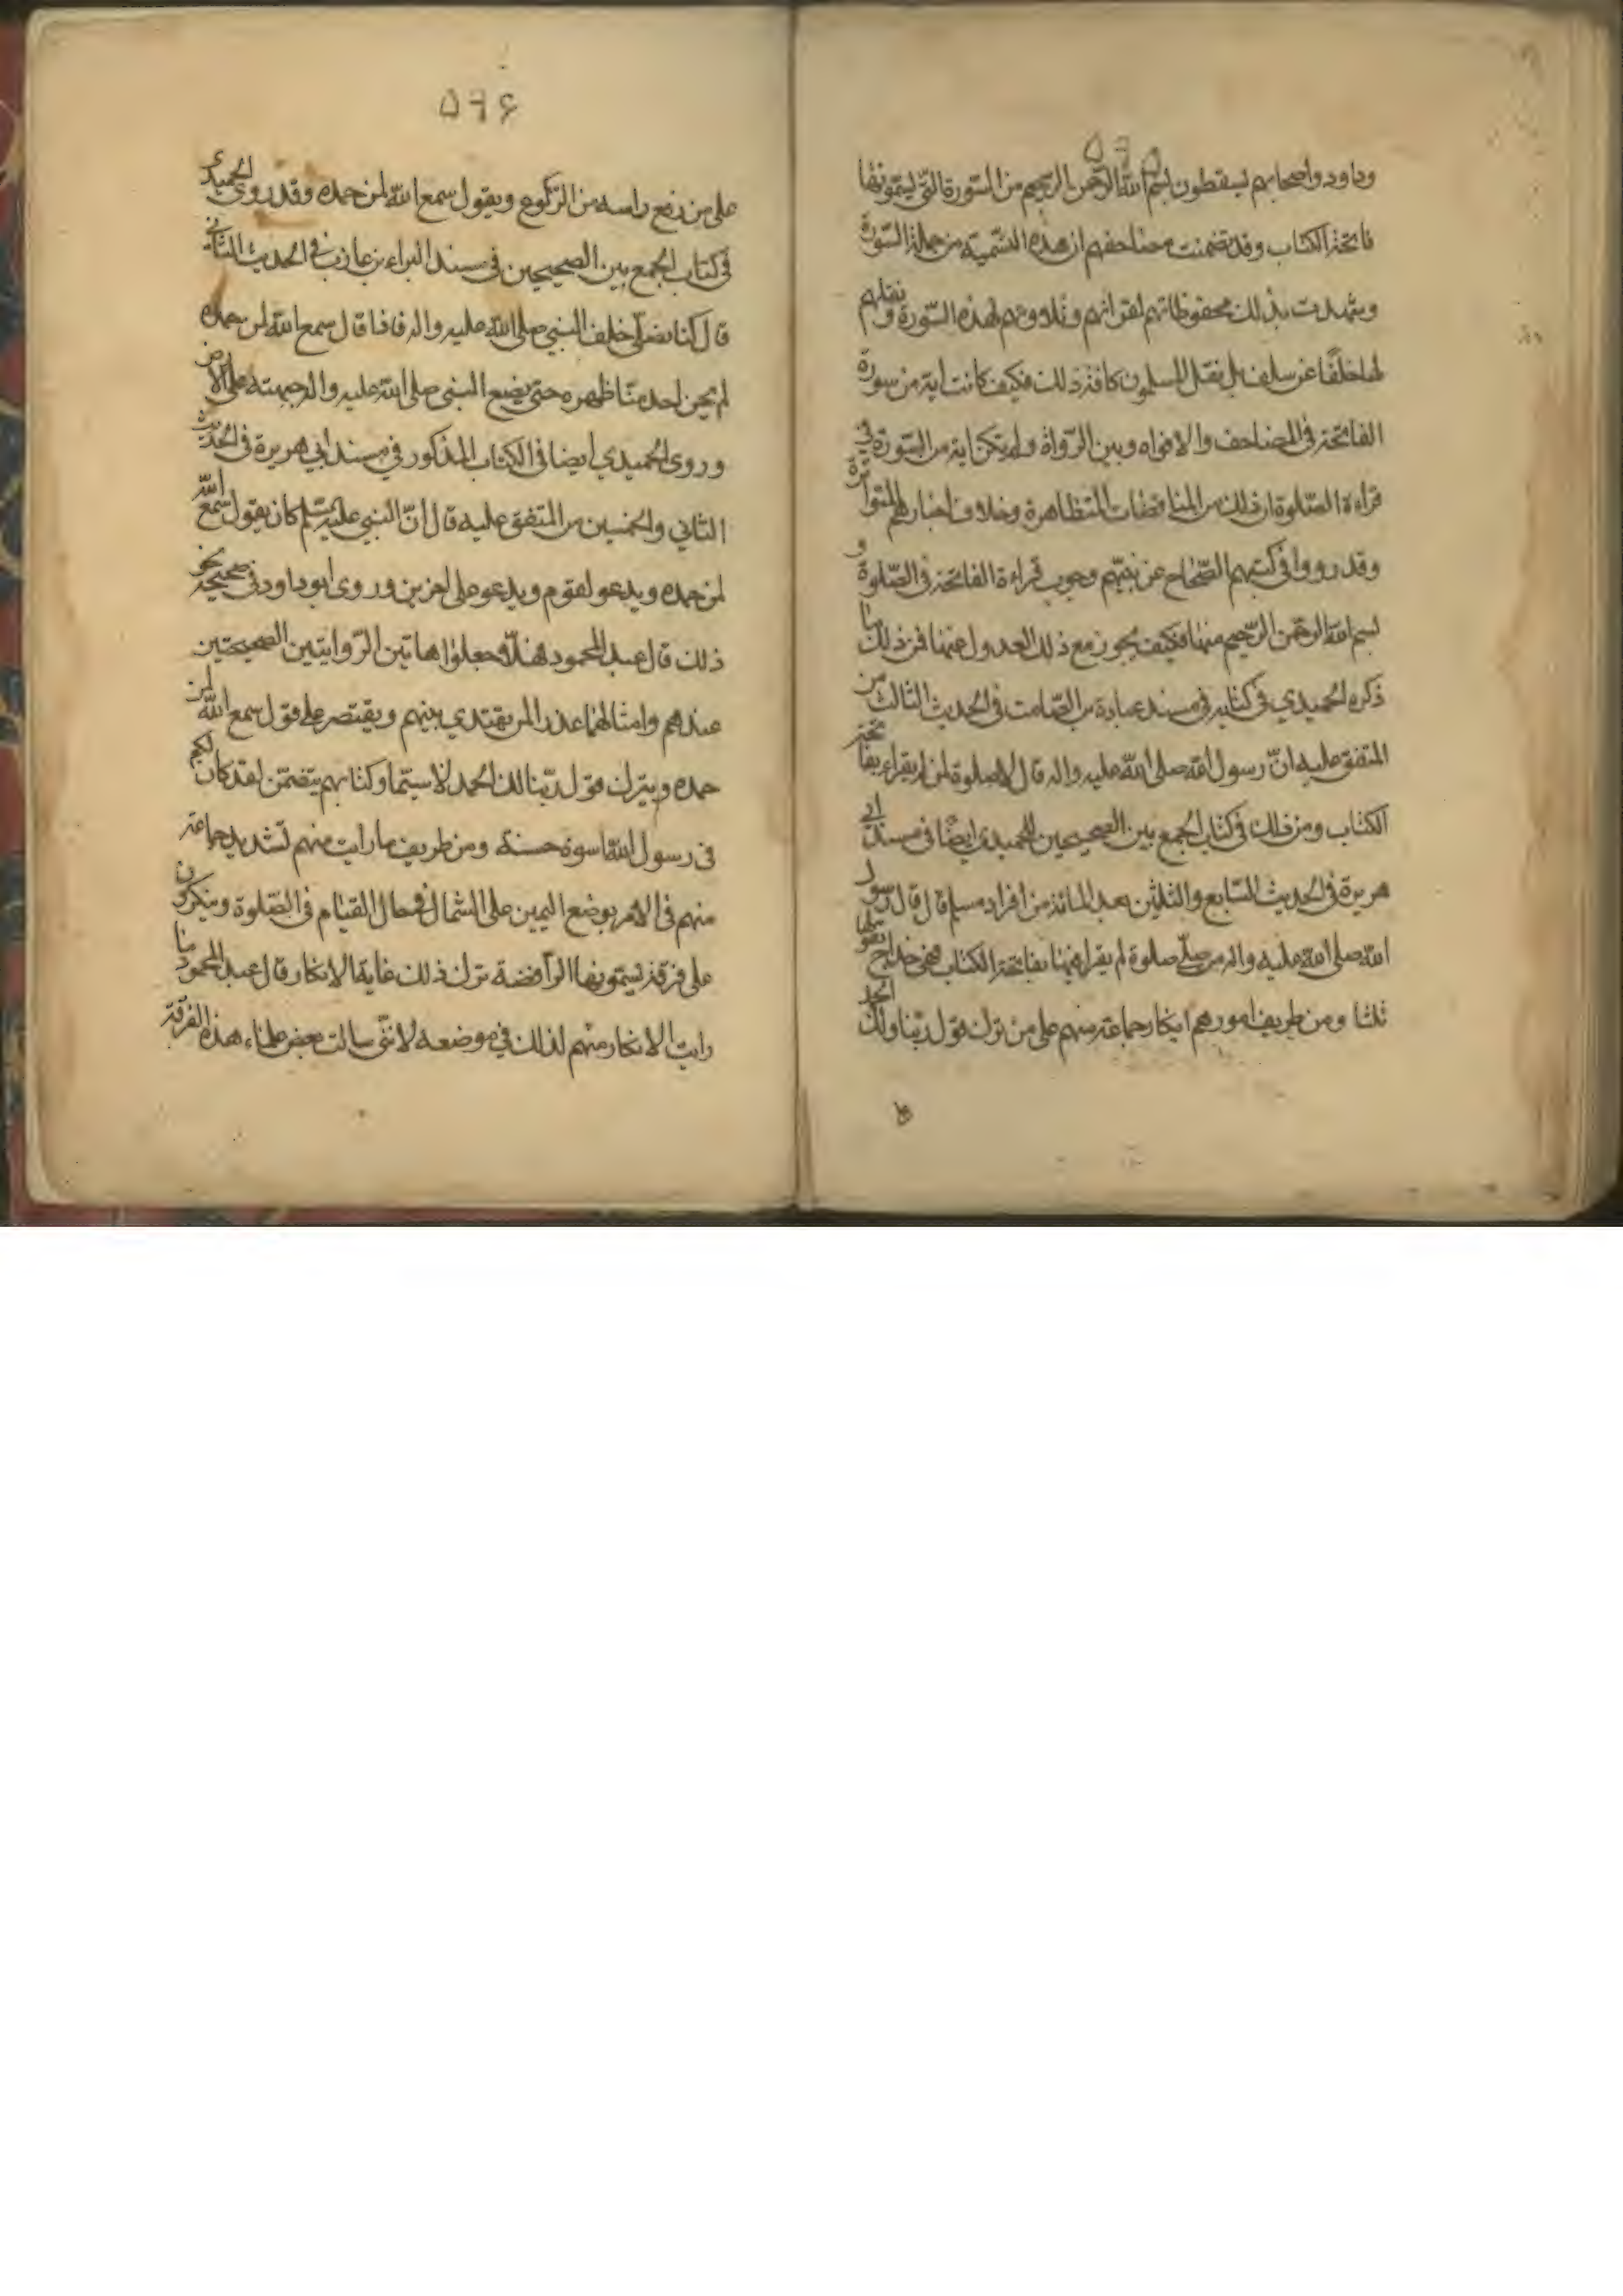 ٥٩٥
وداود واصحابهم يسقطون بسم الله الرحمن الرحيم من السّورة التي يسمّونها
فاتحة الكتاب وقد تضمنت مصاحفهم ان هذه التسمية من جملة السّورة
وشهدت بذلك محفوظاتهم لقرانهم وتلاوتهم لهذه السّورة ونقلهم
لها خلفًا عن سلف بل نقل المسلمون كافة ذلك فكيف كانت اية من سورة
الفاتحة فى المصاحف والافواه وبين الرّواة ولم تكن اية من السّورة في
قراءة الصّلوة ان ذلك من المناقضات المتظاهرة وخلاف اخبارهم المتواترة
وقد رووا فى كتبهم الصّحاح عن نبيّهم وجوب قراءة الفاتحة فى الصّلوة و
بسم الله الرحمن الرّحيم منها فكيف يجوز مع ذلك العدول عنها فمن ذلك ما
ذكره الحميدي فى كتابه فى مسند عبادة بن الصّامت فى الحديث الثالث من
المتفق عليه انّ رسول الله صلى الله عليه واله قال لا صلوة لمن لم يقراء بفاتحة
الكتاب ومن ذلك فى كتاب الجمع بين الصحيحين للحميدي ايضًا فى مسند ابي
هريرة فى الحديث السّابع والثلثين بعد المائة من افراد مسلم قال قال رسول
الله صلى الله عليه واله من صلّى صلوة لم يقرا فيها بفاتحة الكتاب فهى خداج يقولها
ثلثا ومن طريف امورهم انكار جماعة منهم على من ترك قول ربّنا ولك الحمد
٥٩٦
على من رفع راسه من الرّكوع ويقول سمع الله لمن حمده وقد روى الحميدي
فى كتاب الجمع بين الصحيحين فى مسند البراء بن عازب فى الحديث الثاني
قال كنا نصلّى خلف النبي صلى الله عليه واله فاذا قال سمع الله لمن حمده
لم يحن احد منّا ظهره حتى يضع النبى صلى الله عليه واله جبهته على الارض
وروى الحميدي ايضا فى الكتاب المذكور في مسند ابي هريرة فى الحديث
الثاني والخمسين من المتفق عليه قال انّ النبي عليه السّلم كان يقول سمع الله
لمن حمده ويدعو لقوم ويدعو على اخرين وروى ابو داود فى صحيحه نحو
ذلك قال عبد المحمود هلّا جعلوا هاتين الرّوايتين الصحيحتين
عندهم وامثالهما عذرا لمن يقتدي بنبيهم ويقتصر على قول سمع الله لمن
حمده ويترك قول ربّنا لك الحمد لا سيّما وكتابهم يتضمّن لقد كان لكم
فى رسول الله اسوة حسنة ومن طريف ما رايت منهم تشديد جماعة
منهم فى الامر بوضع اليمين على الشمال فى حال القيام فى الصّلوة وينكرون
على فرقة يسمّونها الرّافضة ترك ذلك غاية الانكار قال عبد المحمود ما
رايت الانكار منهم لذلك في موضعه لانني سالت بعض علماء هذه الفرقة